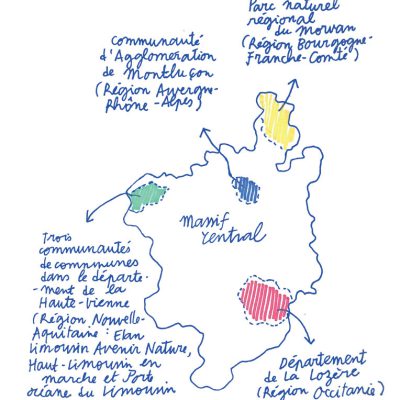 Parc naturel
régional
du Morvan
(Région Bourgogne-
Franche-Comté)
Communauté
d'Agglomération
de Montluçon
(Région Auvergne-
Rhône-Alpes)
Massif
central
Trois
communautés
de communes
dans le départe-
-ment de la
Haute-Vienne
(Région Nouvelle-
Aquitaine : Elan
Limousin Avenir Nature,
Haut-Limousin en
marche et Porte
océane du Limousin
Département
de la Lozère
(Région Occitanie)